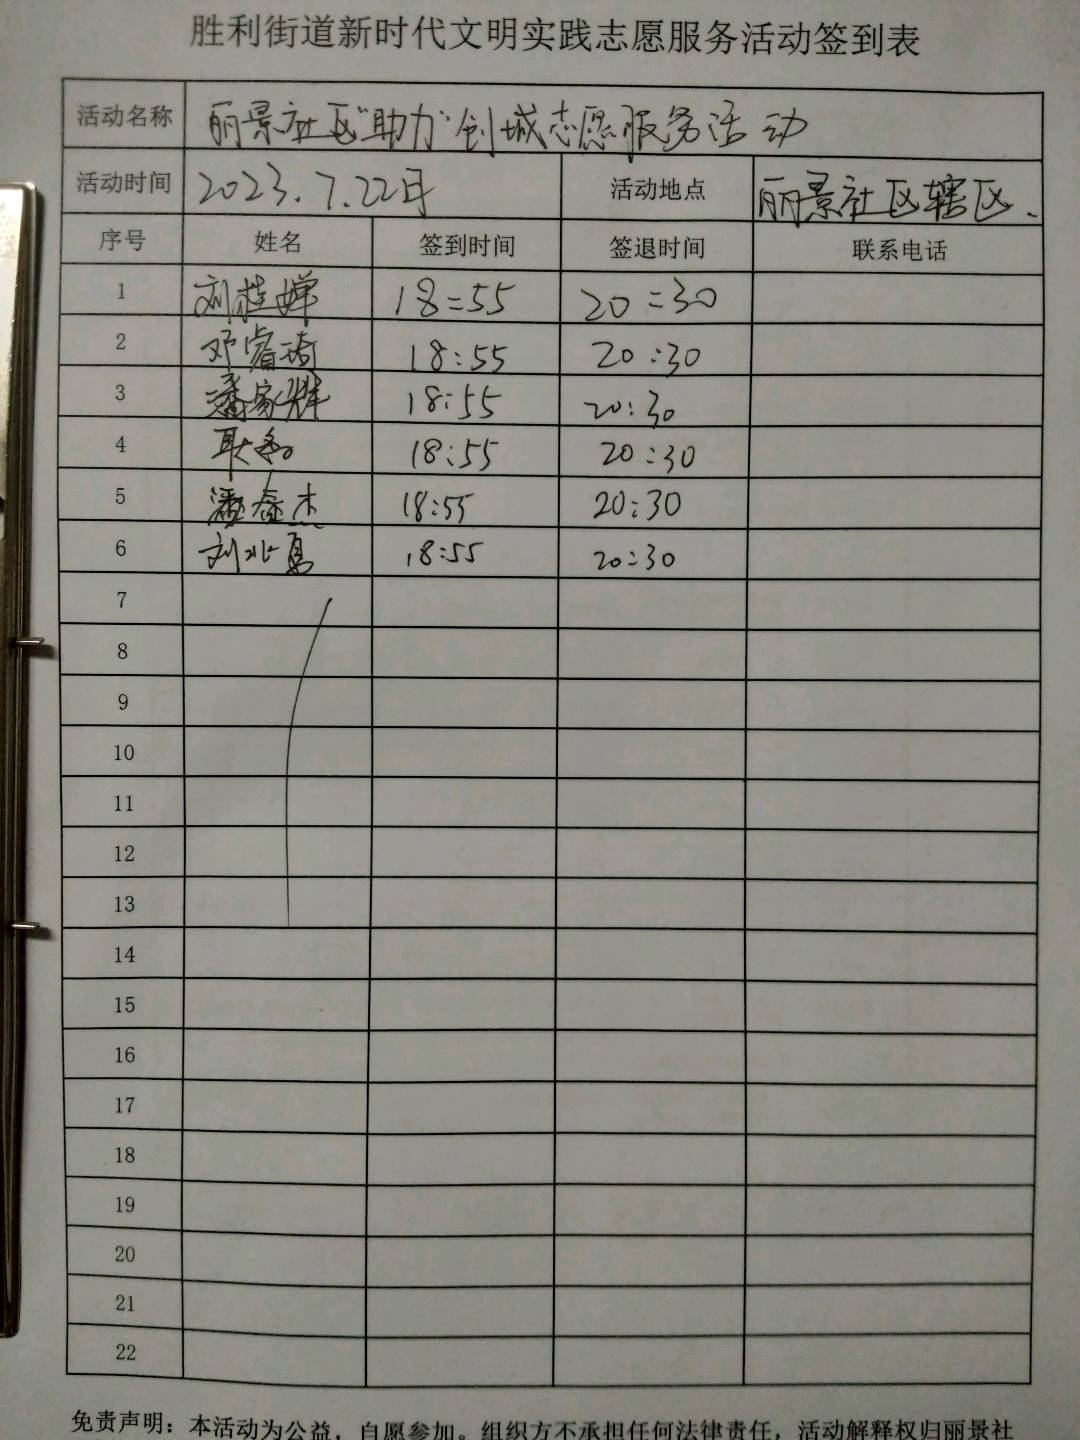 胜利街道新时代文明实践志愿服务活动签到表
活动名称 丽景社区"助力"创城志愿服务活动
活动时间 2023.7.22日 活动地点 丽景社区辖区.
序号 姓名 签到时间 签退时间 联系电话
1 刘桂婵 18:55 20:30
2 邓睿琦 18:55 20:30
3 潘家辉 18:55 20:30
4 18:55 20:30
5 潘 杰 18:55 20:30
6 刘兆 18:55 20:30
7
8
9
10
11
12
13
14
15
16
17
18
19
20
21
22
免责声明：本活动为公益，自愿参加。组织方不承担任何法律责任，活动解释权归丽景社